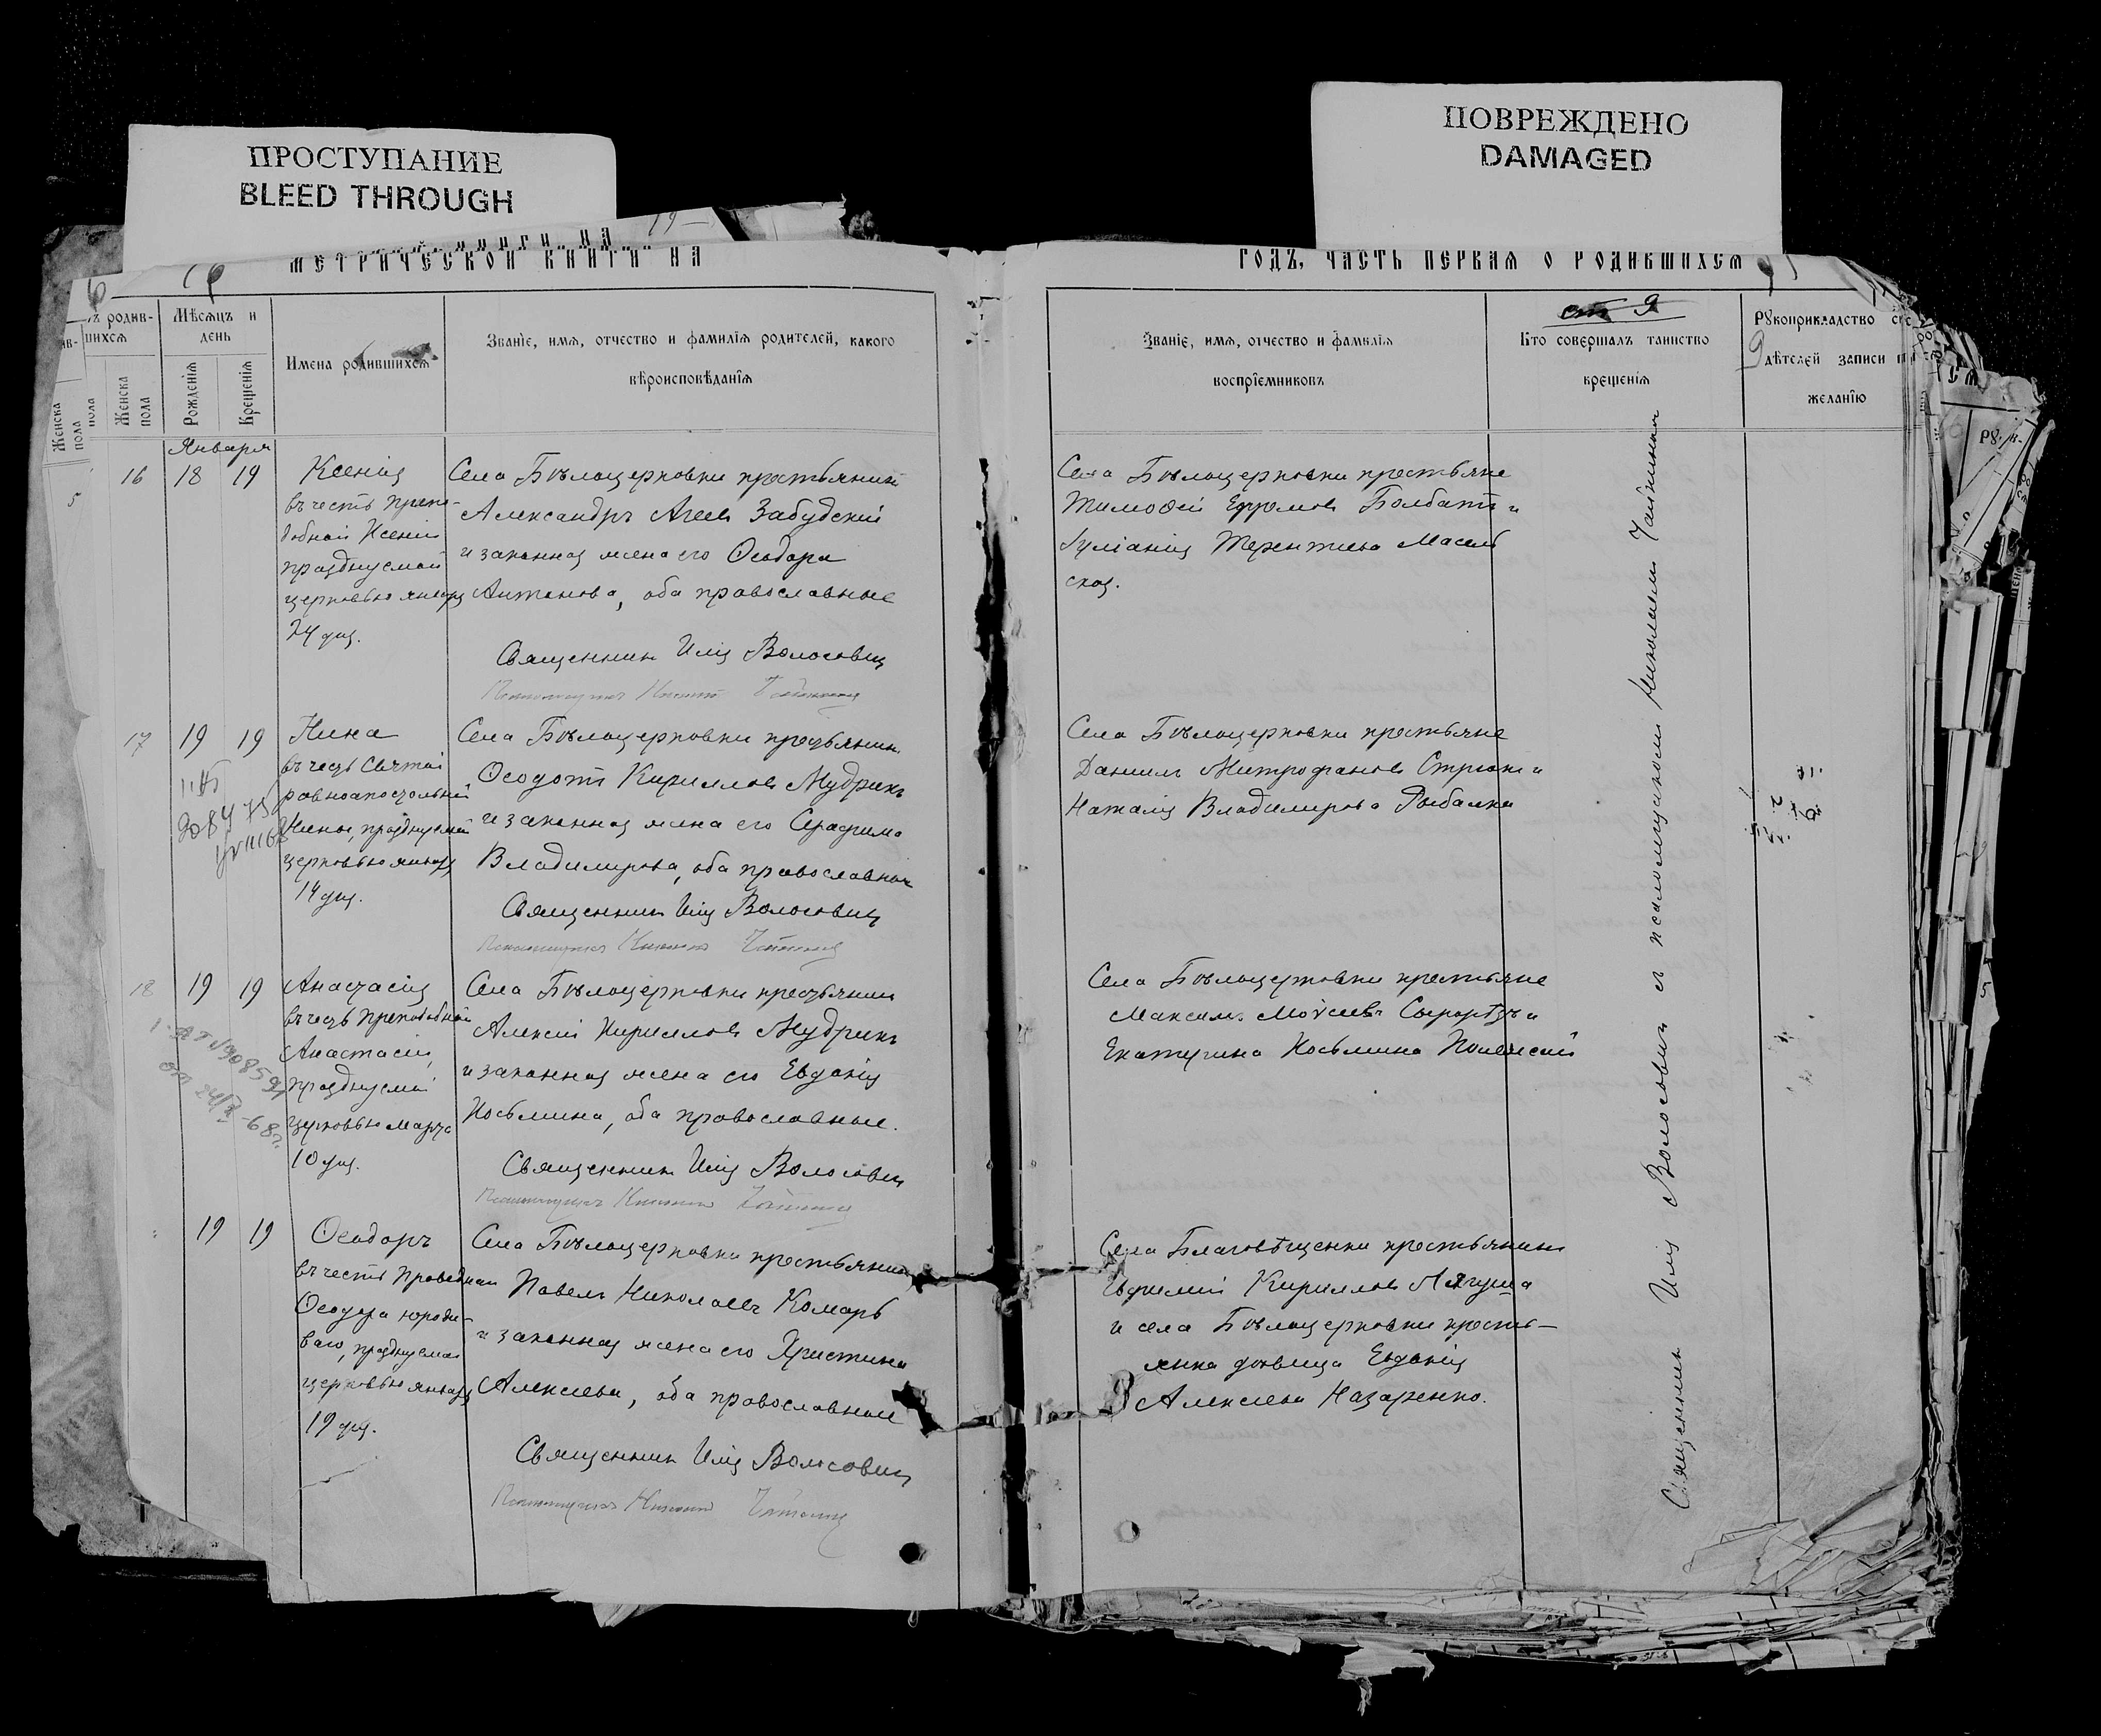 ПРОСТУПАНИЕ
BLEED THROUGH
ПОВРЕЖДЕНО
DAMAGED
МЕТРИЧЕСКОЙ КНИГИ НА
ГОДЪ, ЧАСТЬ ПЕРВАЯ О РОДИВШИХСЯ
родив-
шихся
Мѣсяцъ и
день
Женска
пола
Женска
пола
Рожденія
Крещенія
Имена родившихся
Званіе, имя, отчество и фамилія родителей, какого
вѣроисповѣданія
Званіе, имя, отчество и фамилія
воспріемниковъ
Кто совершалъ таинство
крещенія
Рукоприкладство
дѣтелей записи
желанію
Января
16 18 19
Ксенія
въ честь препо-
добной Ксеніи
празднуемой
церковью января
24 дня.
Села Бѣлоцерковки крестьянинъ
Александръ Агеевъ Забудский
и законная жена его Ѳеодора
Антонова, оба православные
Священникъ Илія Волосовичъ
Села Бѣлоцерковки крестьяне
Тимоѳей Ефремовъ Болбатъ и
Іуліанія Терентиева Масель
ская.
17 19 19
Нина
въ честь Святой
равноапостольной
Нины, празднуемой
церковью января
14 дня.
Села Бѣлоцерковки крестьянинъ
Ѳеодотъ Кирилловъ Мудрикъ
и законная жена его Серафима
Владимирова, оба православные
Священникъ Илія Волосовичъ
Села Бѣлоцерковки крестьяне
Даниилъ Митрофановъ и
Наталія Владимирова Рыбалка
18 19 19
Анастасія
въ честь Преподобной
Анастасіи,
празднуемой
церковью марта
10 дня.
Села Бѣлоцерковки крестьянинъ
Алексій Кирилловъ Мудрикъ
и законная жена его Евдокія
Косьмина, оба православные.
Священникъ Илія Волосовичъ
Села Бѣлоцерковки крестьяне
Максимъ Моѵсеевъ и
Екатерина Косьмина
19 19
Ѳеодоръ
въ честь Праведнаго
Ѳеодора юроди-
ваго, празднуемаго
церковью января
19 дня.
Села Бѣлоцерковки крестьянинъ
Павелъ Николаевъ Комаръ
и законная жена его Христина
Алексіева, оба православные
Священникъ Илія Волосовичъ
Села Благовѣщенки крестьянинъ
Евфимій Кирилловъ Лягуша
и села Бѣлоцерковки кресть-
янка дѣвица Евдокія
Алексіева Назаренко.
Священникъ Илія Волосовичъ съ псаломщикомъ Николаемъ